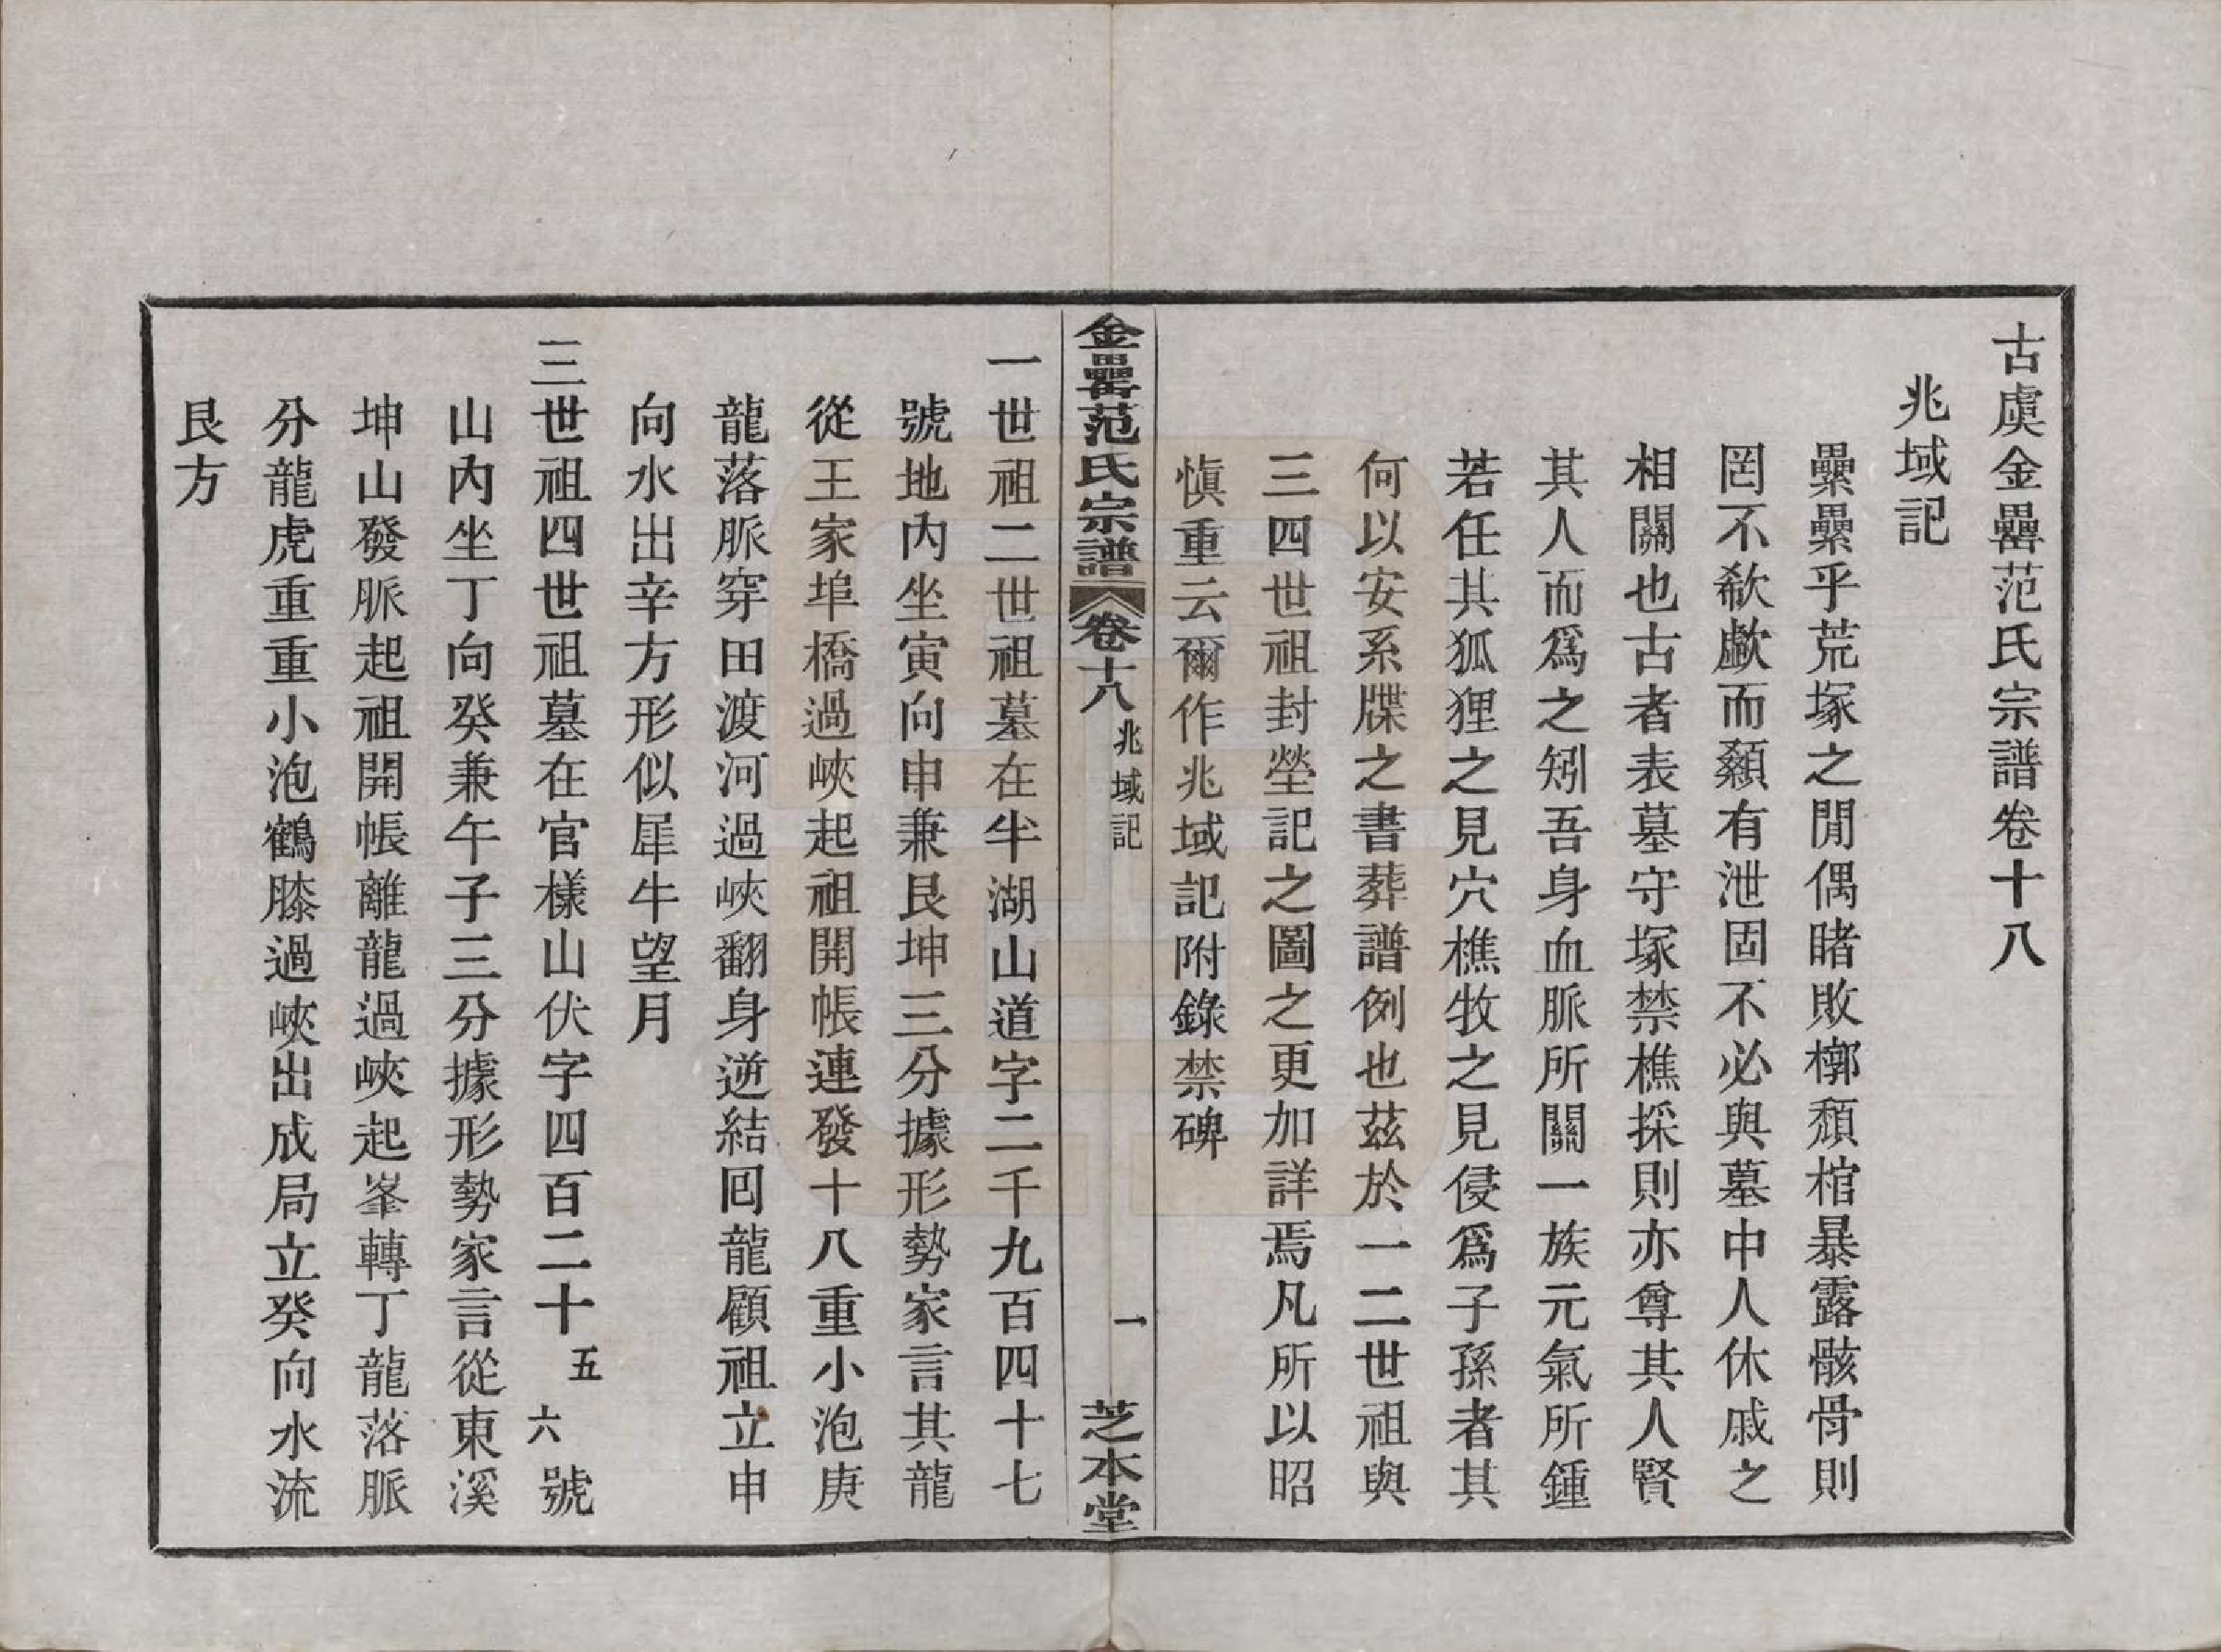 古虞金罍范氏宗譜卷十八
兆域記
纍纍乎荒塚之閒偶睹敗槨頹棺暴露骸骨則
罔不欷歔而顙有泄固不必與墓中人休戚之
相關也古者表墓守塚禁樵採則亦尊其人賢
其人而爲之矧吾身血脈所關一族元氣所鍾
若任其狐狸之見穴樵牧之見侵爲子孫者其
何以安系牒之書葬譜例也茲於一二世祖與
三四世祖封塋記之圖之更加詳焉凡所以昭
愼重云爾作兆域記附錄禁碑
金罍范氏宗譜 卷十八 兆域記 一 芝本堂
一世祖二世祖墓在半湖山道字二千九百四十七
號地內坐寅向申兼艮坤三分據形勢家言其龍
從王家埠橋過峽起祖開帳連發十八重小泡庚
龍落脈穿田渡河過峽翻身逆結回龍顧祖立申
向水出辛方形似犀牛望月
三世祖四世祖墓在官樣山伏字四百二十五六號
山內坐丁向癸兼午子三分據形勢家言從東溪
坤山發脈起祖開帳離龍過峽起峯轉丁龍落脈
分龍虎重重小泡鶴膝過峽出成局立癸向水流
艮方